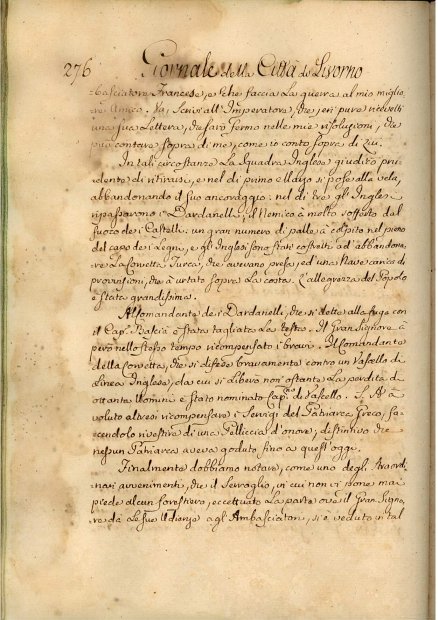 276 Giornale della Città di Livorno
basciatore Francese, o che faccia La guerra al mio miglio
re Amico. Va, Scrivi all' Imperatore, che, eri pure
una sua Lettera, che saro fermo nelle mie risoluzioni, che
puo contare sopra di me, come io conto sopra di Lui.
In tali circostanze La Squadra Inglese giudicò pru
dente di ritirarsi, e nel dì primo el dayo si pose alla vela,
abbandonando il suo ancoraggio: nel dì tre gl' Inglesi
ripassarono i Dardanelli, il Nemico à molto sofferto dal
fuoco dei Castelli: un gran numero di palle à colpito nel pieno
del capo dei Legni, e gl' Inglesi sono stati costretti ad abbandona
re La Corvetta Turca, che avevano presa, ed una Nave carica di
provvisioni, che à urtato sopra La costa. L'allegrezza del Popolo
è stata grandissima.
Al Comandante dei Dardanelli, che si dette alla fuga con
il Cap. Bascià è stata tagliata La testa. Il Gran Signore à
però nello stesso tempo ricompensato i bravi. Il Comandante
della Corvetta, che si difese bravamente contro un Vascello di
Linea Inglese, da cui si Liberò non ostante La perdita di
ottanta Uomini è stato nominato Cap. di Vascello. S. A. à
voluto altresì ricompensare i Servigi del Patriarca Greco, fa
cendolo rivestire di una Pelliccia d'onore, distintivo che
nessun Patriarca aveva goduto fino a quest' oggi.
Finalmente dobbiamo notare, come uno degli straordi
nari avvenimenti, che il Serraglio, in cui non vi pone mai
piede alcun forastiero, eccettuato La parte ove il Gran Signo
re dà Le sue Udienze agl' Ambasciatori, si è veduto in tal